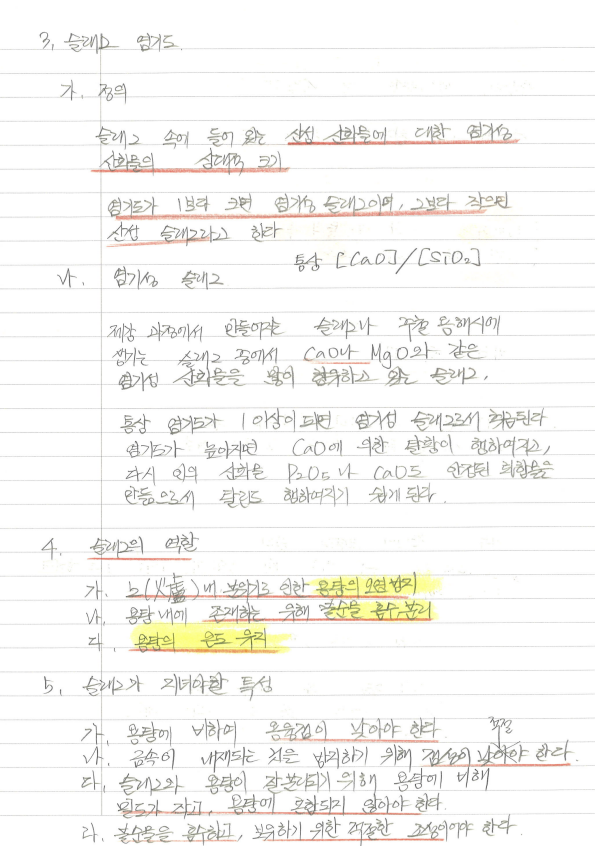 3. 슬래그 염기도
가. 정의
슬래그 속에 들어 있는 산성 산화물에 대한 염기성
산화물의 상대적 크기
염기도가 1보다 크면 염기성 슬래그이며, 그보다 작으면
산성 슬래그라고 한다
통상 [CaO]/[SiO₂]
나. 염기성 슬래그
제강 과정에서 만들어지는 슬래그나 주철 용해시에
생기는 슬래그 중에서 CaO나 MgO와 같은
염기성 산화물을 많이 함유하고 있는 슬래그.
통상 염기도가 1이상이 되면 염기성 슬래그로서 취급된다
염기도가 높아지면 CaO에 의한 탈황이 행하여지고,
다시 인의 산화물 P₂O₅나 CaO도 안정된 화합물을
만듦으로서 탈린도 행하여지기 쉽게 된다.
4. 슬래그의 역할
가. 노(火盧)내 분위기로 인한 용탕의 오염 방지
나. 용탕 내에 존재하는 유해 불순물 흡수, 분리
다. 용탕의 온도 유지
5. 슬래그가 지녀야할 특성
가. 용탕에 비하여 용융점이 낮아야 한다.
적절
나. 금속이 내재되는 것을 방지하기 위해 점성이 낮아야 한다.
다. 슬래그와 용탕이 잘 분리되기 위해 용탕에 비해
밀도가 작고, 용탕에 포함되지 않아야 한다.
라. 불순물을 흡수하고, 보유하기 위한 적절한 조성이어야 한다.